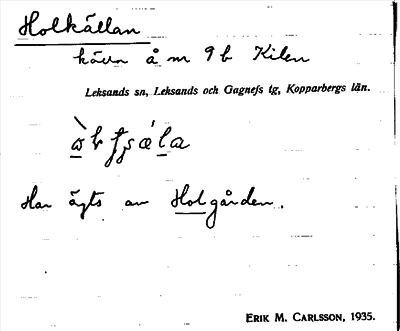 Holkällan
källa å nr 9 b Kilen
Leksands sn, Leksands och Gagnefs tg, Kopparbergs län.
Har ägts av Holgården.
ERIK M. CARLSSON, 1935.